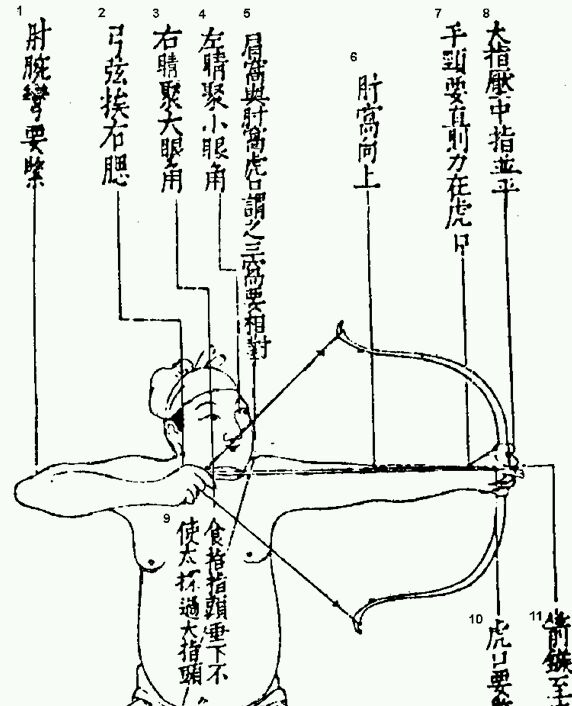 1 肘腕彎要緊
2 弓弦挨右腮
3 右睛聚大眼角
4 左睛聚小眼角
5 肩窩與肘窩虎口謂之三窩要相對
6 肘窩向上
7 手頸要直則力在虎口
8 大指壓中指並平
9 食指指頭垂下不
使太探過大指頭
10 虎口要
11 箭鏃至